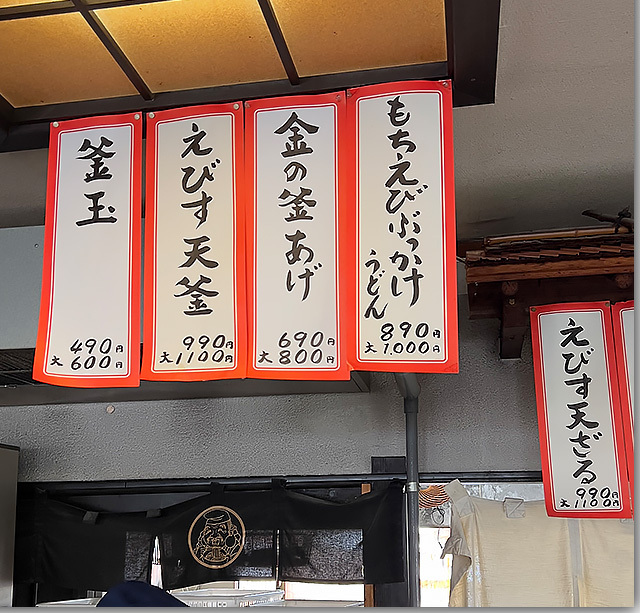 もちえびぶっかけ
うどん
890円
大 1,000円
金の釜あげ
690円
大 800円
えびす天釜
990円
大 1100円
釜玉
490円
大 600円
えびす天ざる
990円
大 1100円